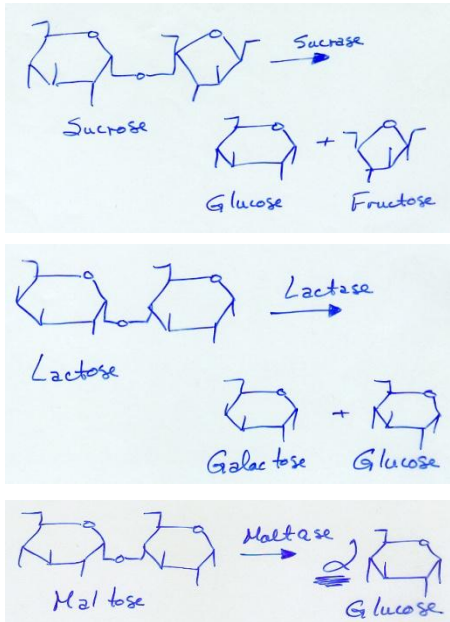 Sucrase
Sucrose
+
Glucose Fructose
Lactase
Lactose
+
Galactose Glucose
Maltase
2
Maltose
Glucose